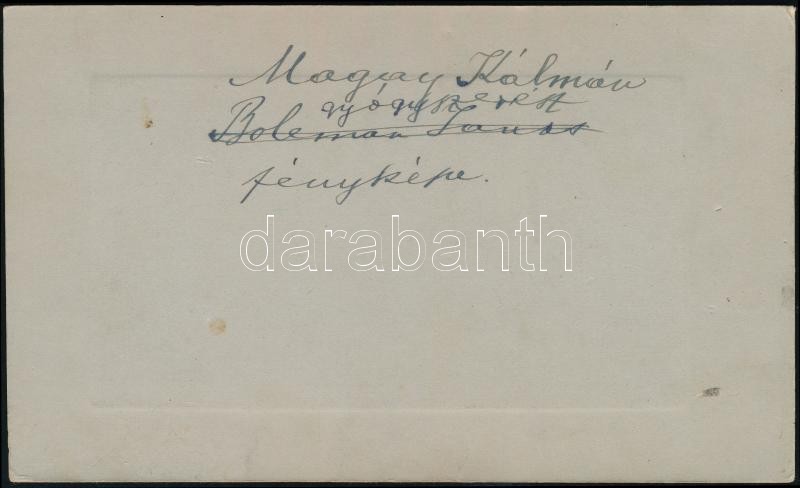 Magay Kálmán
gyógyszerész
Boleman János
fényképe.
darabanth